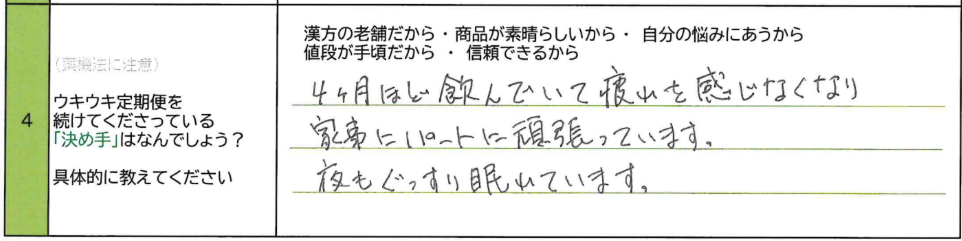 漢方の老舗だから・商品が素晴らしいから・ 自分の悩みにあうから
値段が手頃だから ・ 信頼できるから
(薬機法に注意)
4
ウキウキ定期便を
続けてくださっている
「決め手」はなんでしょう?
具体的に教えてください
4ヶ月ほど飲んでいて疲れを感じなくなり
家事にパートに頑張っています。
夜もぐっすり眠れています。